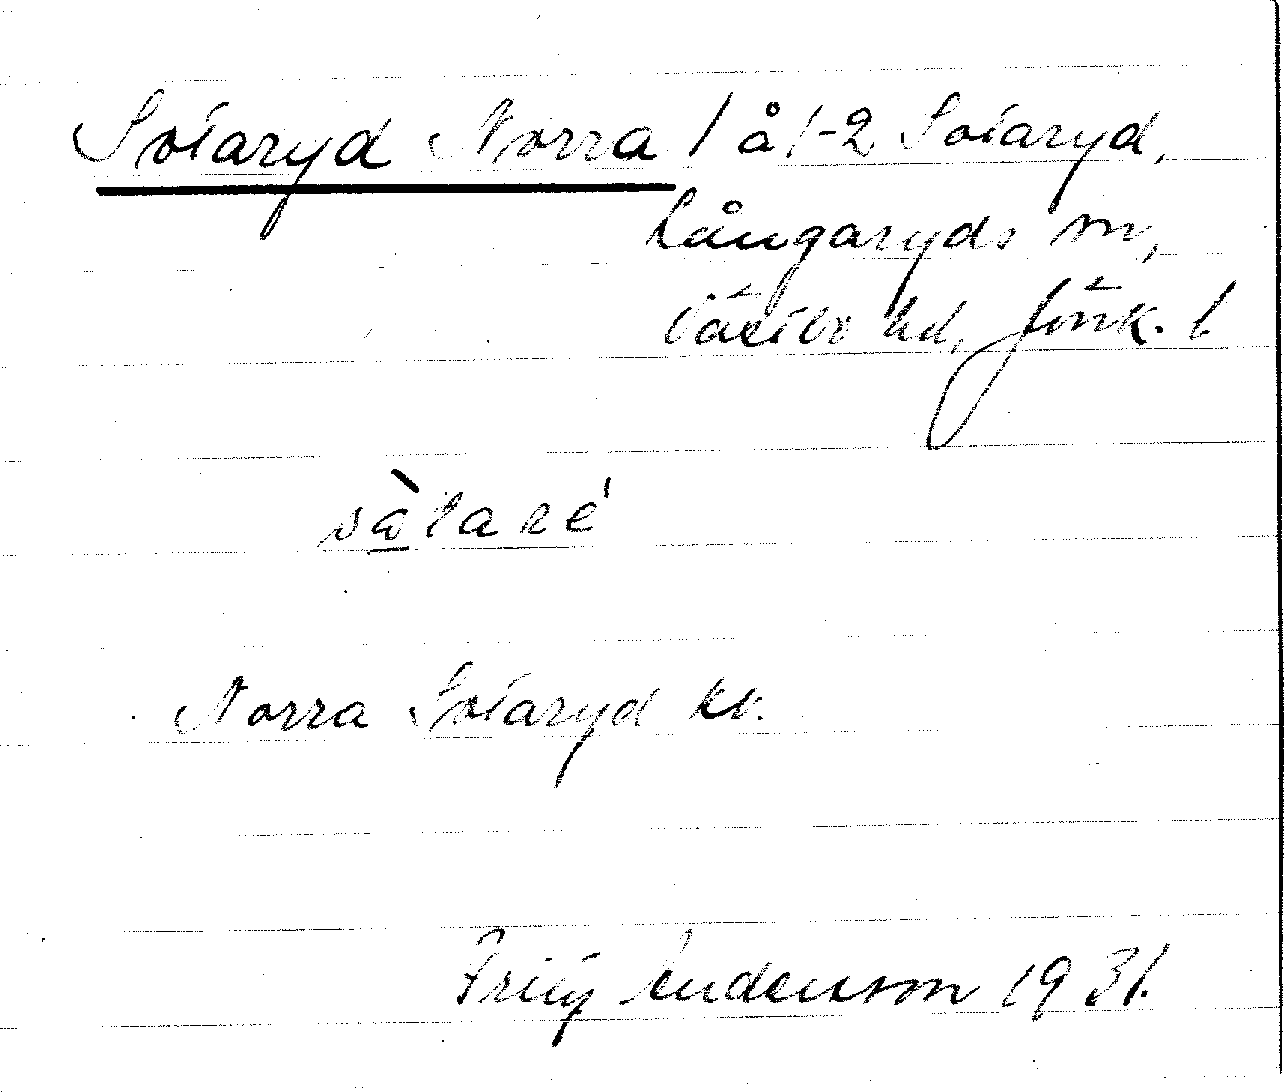 Sotaryd Norra / å 1-2 Sotaryd,
Långaryds sn,
Västbo hd, Jönk. l
sàtaré
Norra Sotaryd kv.
Anderson 1931.